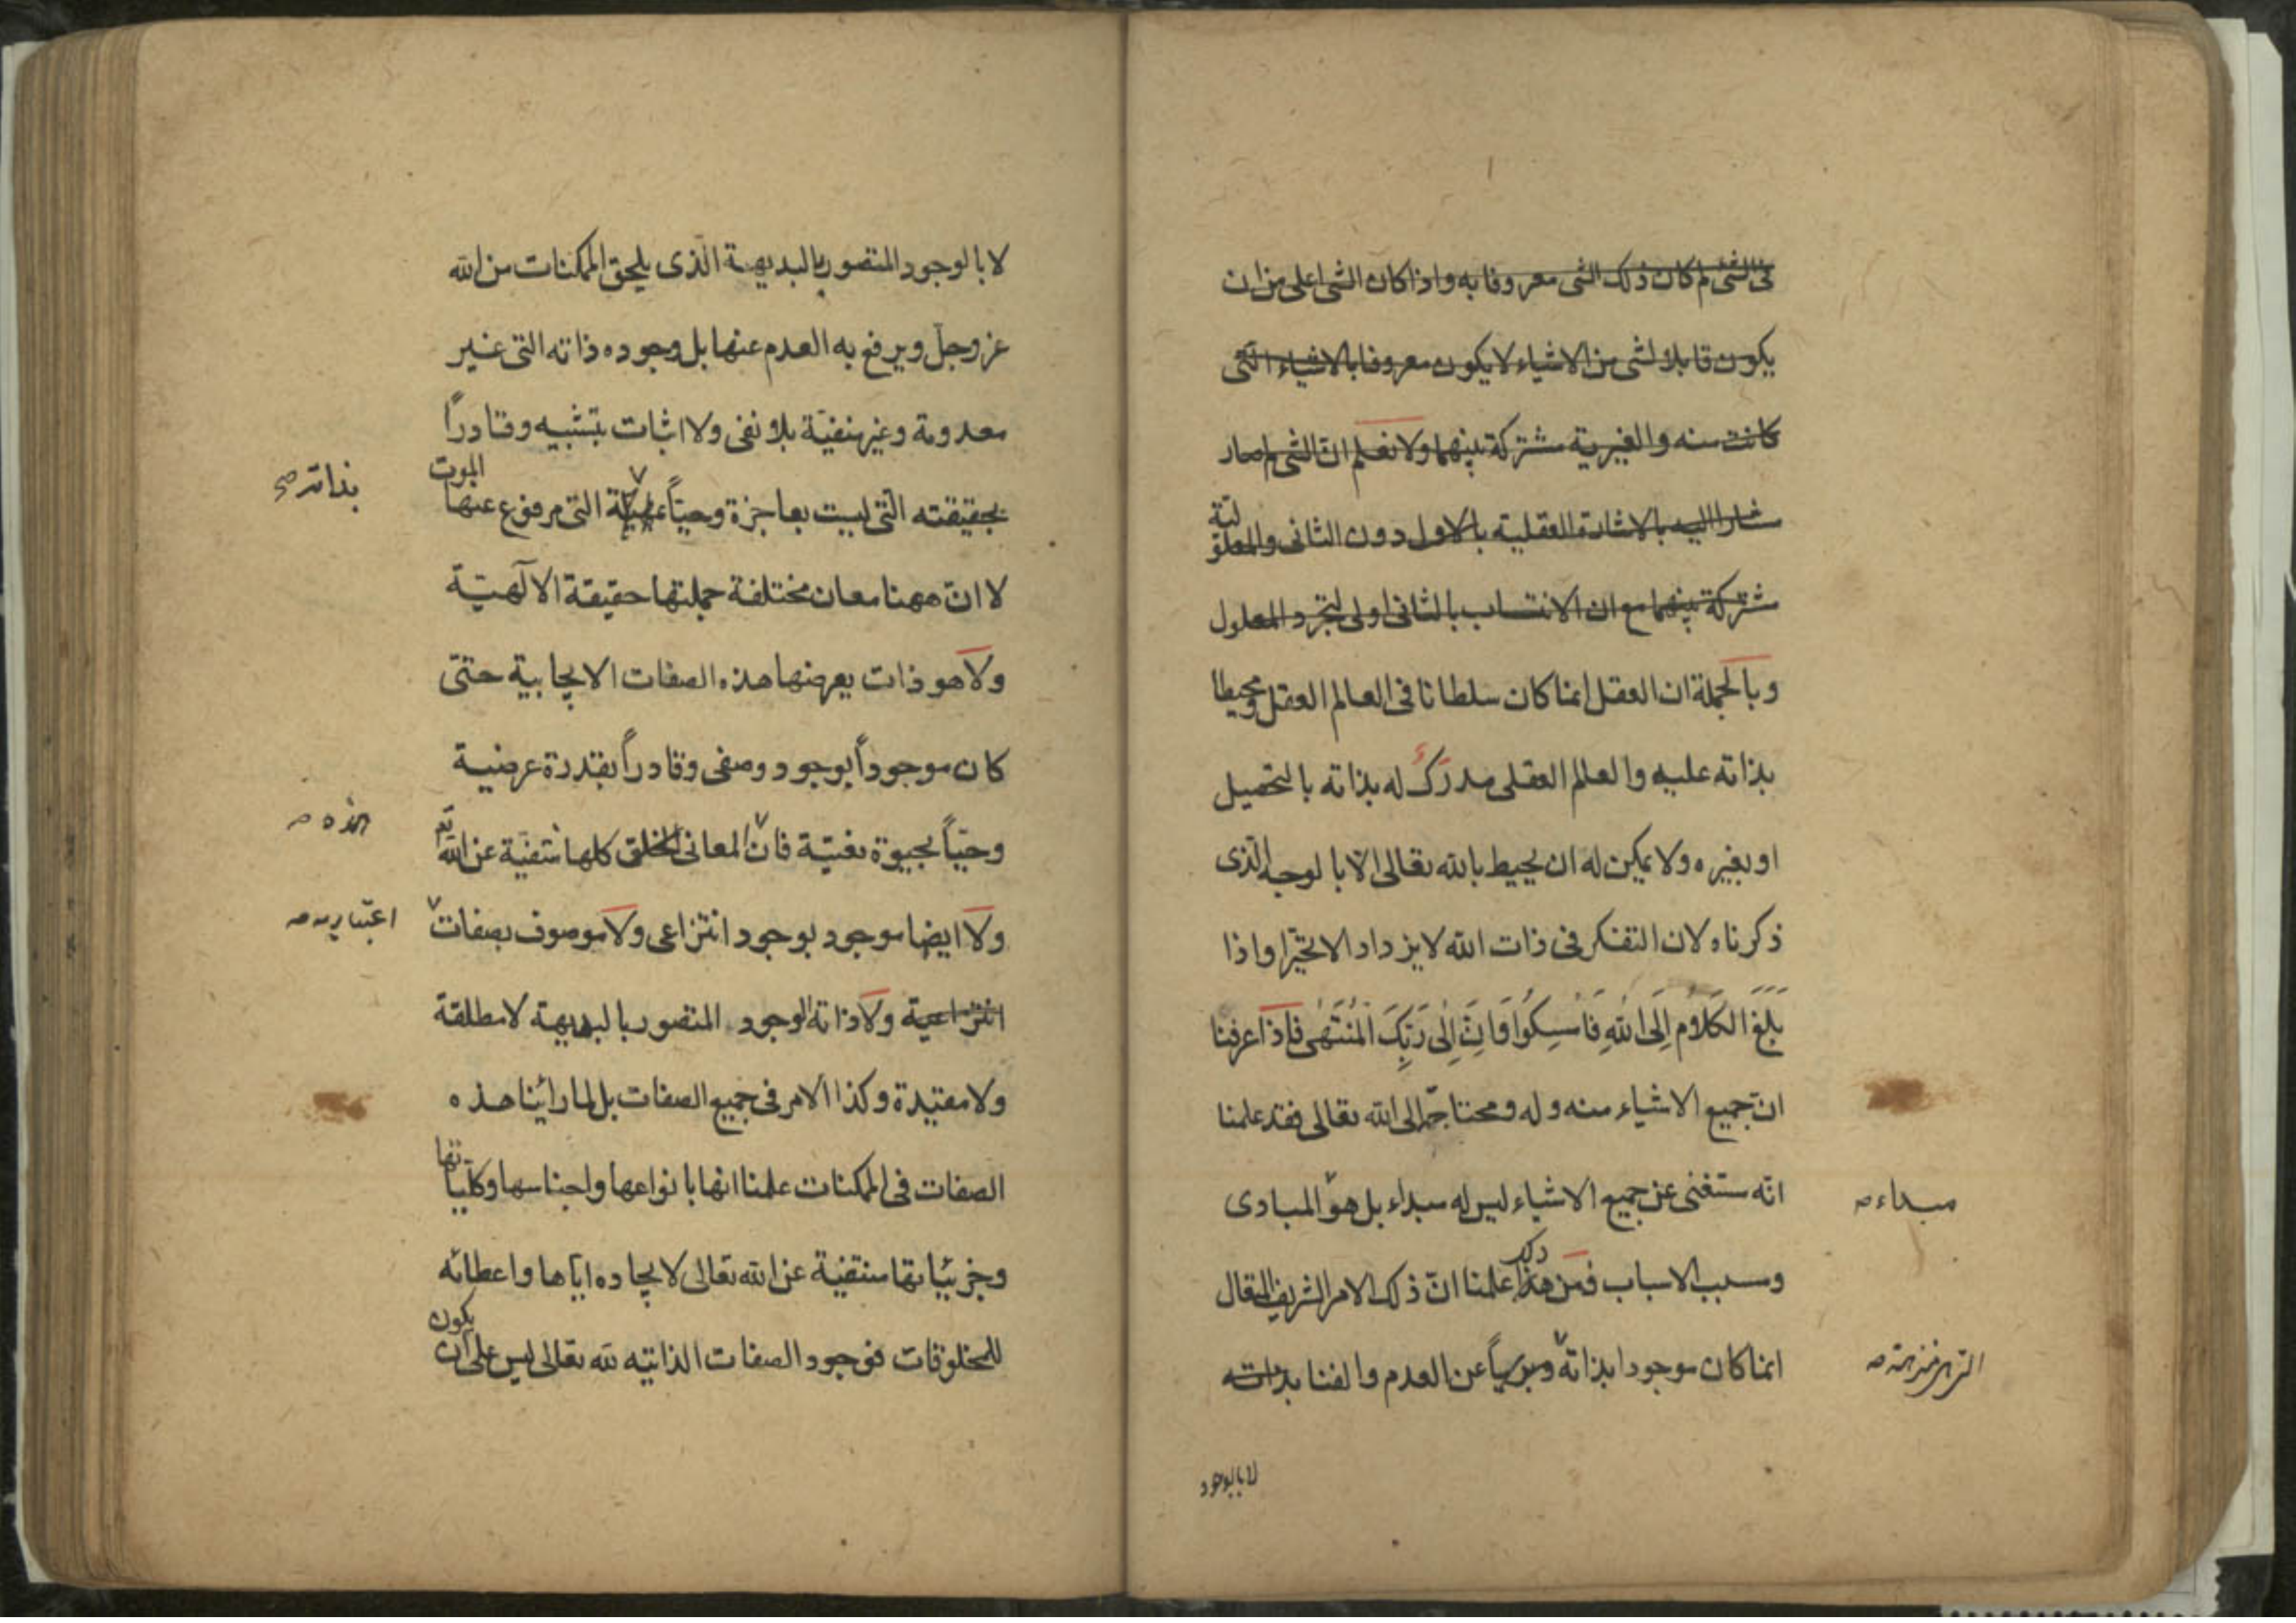 فى الشئ لم كان ذلك الشى معروفا به واذا كان الشى اعلى من ان
يكون قابلا لشى من الاشياء لا يكون معروفا بالاشياء التى
كانت منه والغيرية مشتركة بينهما ولا نعلم ان الشى لم صار
مشارا اليه بالاشارة العقلية بالاول دون الثانى والمعلولية
مشتركة بينهما مع ان الانتساب بالثانى اولى لتجرد المعلول
وبالجملة ان العقل انما كان سلطانا فى العالم العقل ومحيطا
بذاته عليه والعالم العقلى مدرَكٌ له بذاته بالتحميل
او بغيره ولا يمكن له ان يحيط بالله تعالى الا بالوجه الذى
ذكرناه لان التفكر فى ذات الله لا يزداد الا تحيّرا واذا
بَلَغَ الكَلَامُ اِلَى اللهِ فَاَمسِكُوا فَاِنَّ اِلٰى رَبِّكَ المُنتَهٰى فاذا عرفنا
انّ جميع الاشياء منه وله ومحتاجة الى الله تعالى فقد علمنا
انّه مستغنى عن جميع الاشياء ليس له مبداء بل هو المبادى
مبداء صح
وسبب الاسباب فمن هذا علمنا انّ ذلك الامر الشريف المتعال
ذلك
انما كان موجودا بذاته وبريّاً عن العدم والفنا بذاته
لا بالوجود
لا بالوجود المتصور بالبديهة الّذى يلحق الممكنات من الله
عز وجل ويرفع به العدم عنها بل وجوده ذاته التى غير
معدومة وغير منفيّة بلا نفى ولا اثبات بتشبيه وقادراً
بحقيقته الّتى ليست بعاجزة وحيّاً التى مرفوع عنها الموت
بذاته صح
لا انّ ههنا معان مختلفة جملتها حقيقة الآلهيّة
ولا هو ذات يعرضها هذه الصفات الايجابية حتّى
كان موجوداً بوجود وصفى وقادراً بقدرة عرضية
وحيّاً بحيوة نعتيّة فانّ المعانى الخلق كلها منتفيّة عن الله تم
ولا ايضا موجود بوجود انتزاعى ولا موصوف بصفات
اعتباريه صح
انتزاعية ولا ذاته الوجود المتصور بالبديهة لا مطلقة
ولا مقيّدة وكذا الامر فى جميع الصفات بل لما رائينا هذه
الصفات فى الممكنات علمنا انها بانواعها واجناسها وكليّاتها
وجزئيّاتها منتفيّة عن الله تعالى لايجاده ايّاها واعطائه
للمخلوقات فوجود الصفات الذاتيّه لله تعالى ليس على ان يكون